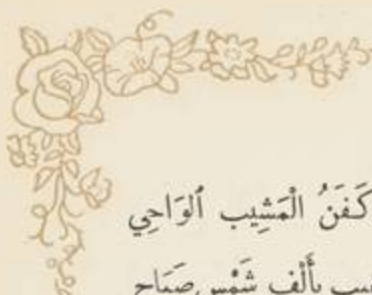 كَفَنُ الْمَشِيبِ ٱلوَاحِي
بِأَلْفِ شَمْسِ صَبَاحِ